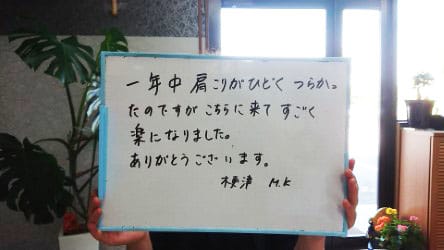 一年中肩こりがひどく つらかっ
たのですが こちらに来て すごく
楽になりました。
ありがとうございます。
木更津 M.K